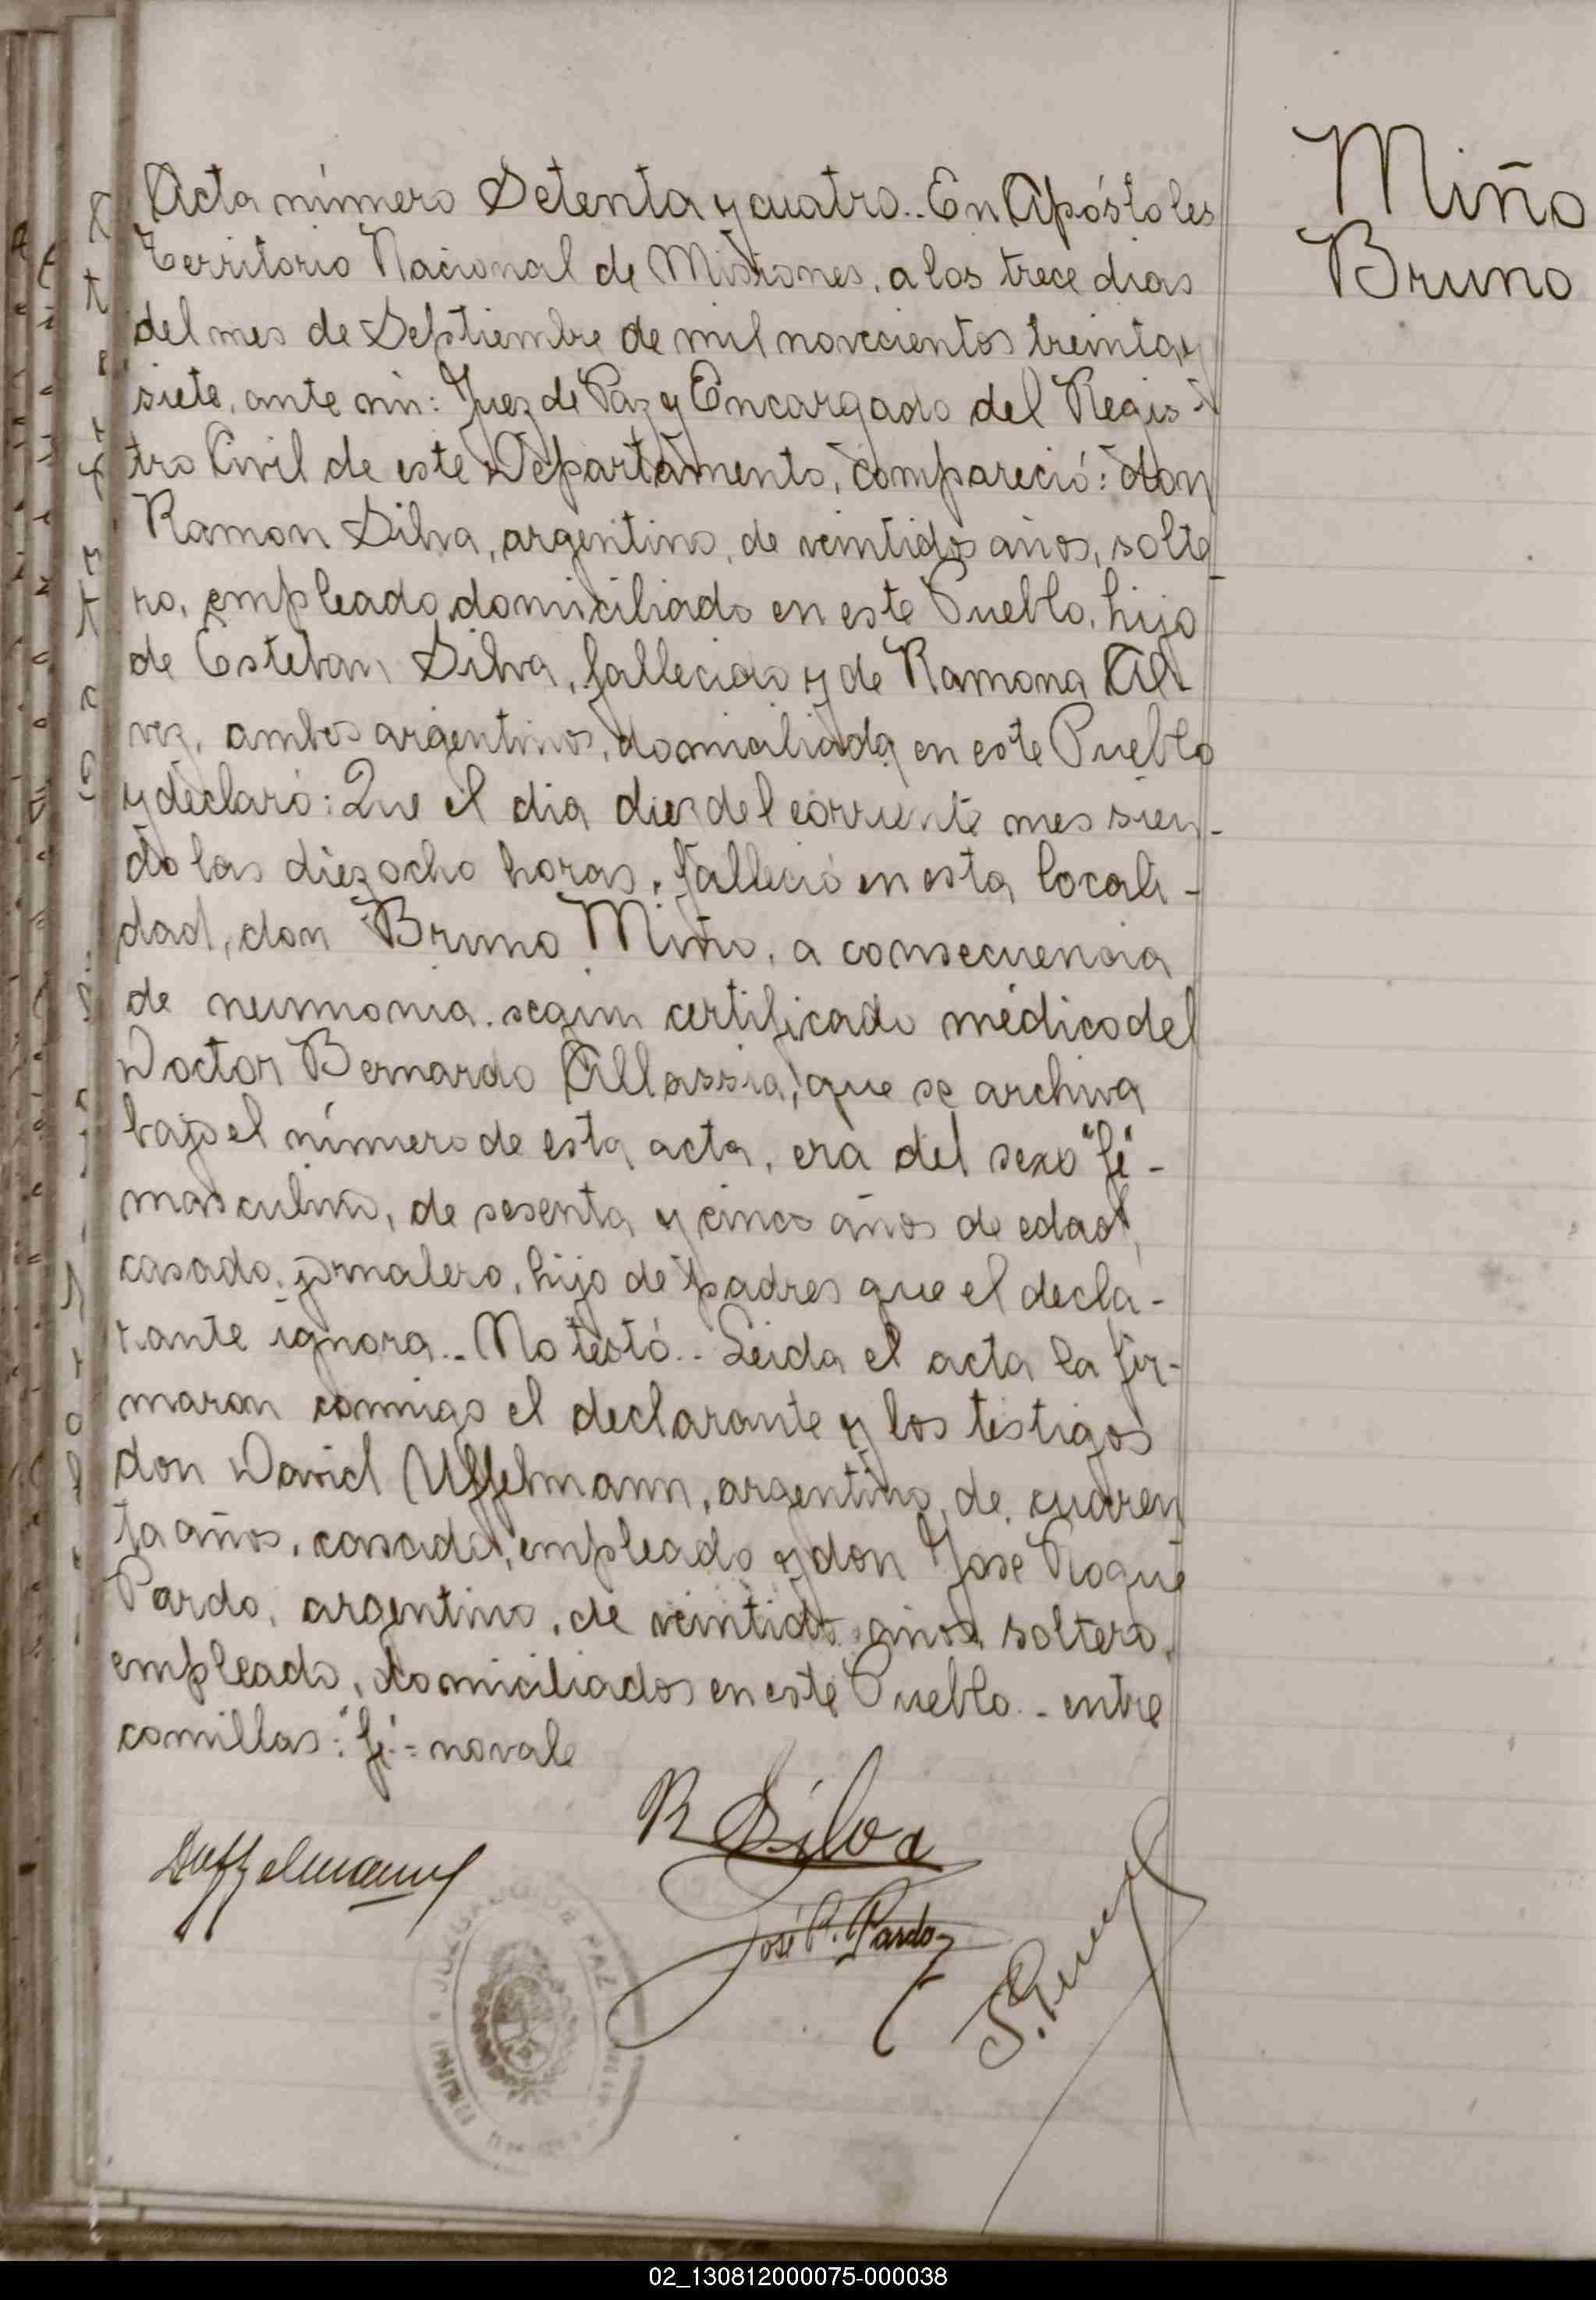 Miño
Bruno
Acta número Setenta y cuatro.. En Apóstoles
Territorio Nacional de Misiones, a los trece dias
del mes de Septiembre de mil novecientos treinta y
siete, ante mi: Juez de Paz y Encargado del Regis-
tro Civil de este Departamento, compareció: don
Ramon Silva, argentino, de veintidos años, solte
ro, empleado domiciliado en este Pueblo, hijo
de Esteban Silva, fallecido y de Ramona Al
vez, ambos argentinos, domiciliada en este Pueblo
y declaró: Que el dia diez del corriente mes sien-
do las diez ocho horas, falleció en esta locali-
dad, don Bruno Miño, a consecuencia
de neumonia. según certificado médico del
Doctor Bernardo Allassia, que se archiva
bajo el número de esta acta, era del sexo "fe"-
masculino, de sesenta y cinco años de edad,
casado, jornalero, hijo de padres que el decla-
rante ignora.. No testó.. Leida el acta la fir-
maron conmigo el declarante y los testigos
don David Uffelmann, argentino, de cuaren
ta años, casado, empleado y don José Roque
Pardo, argentino, de veintidos años, soltero,
empleado, domiciliados en este Pueblo.- entre
comillas: "fe"= no vale
R Silva
DUffelmann
José R. Pardo
JUZGADO DE PAZ
02_130812000075-000038